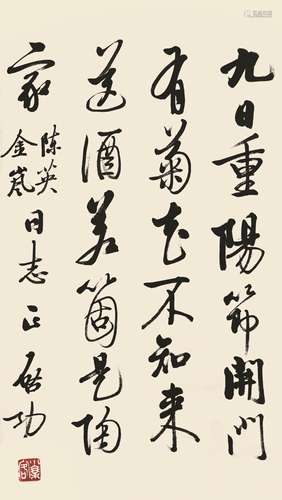 九日重陽節開門
有菊花不知來
送酒若箇是陶
家
陳英
金嵐
同志正 啟功